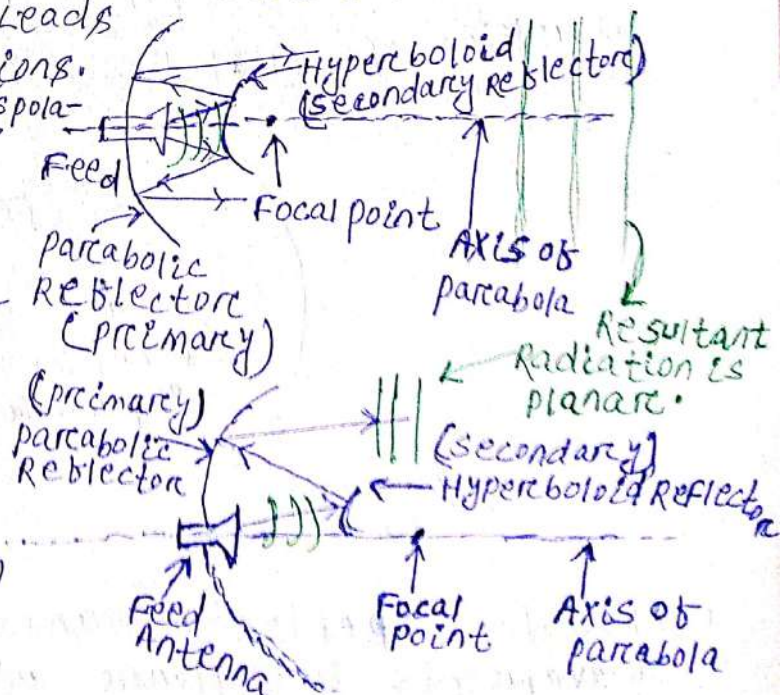 Leads
ions.
spola-
Hyperboloid
(Secondary Reflector)
Feed
Focal point
Axis of
parabola
parabolic
Reflector
(primary)
Resultant
Radiation is
planar.
(primary)
parabolic
Reflector
(Secondary)
Hyperboloid Reflector
Feed
Antenna
Focal
point
Axis of
parabola